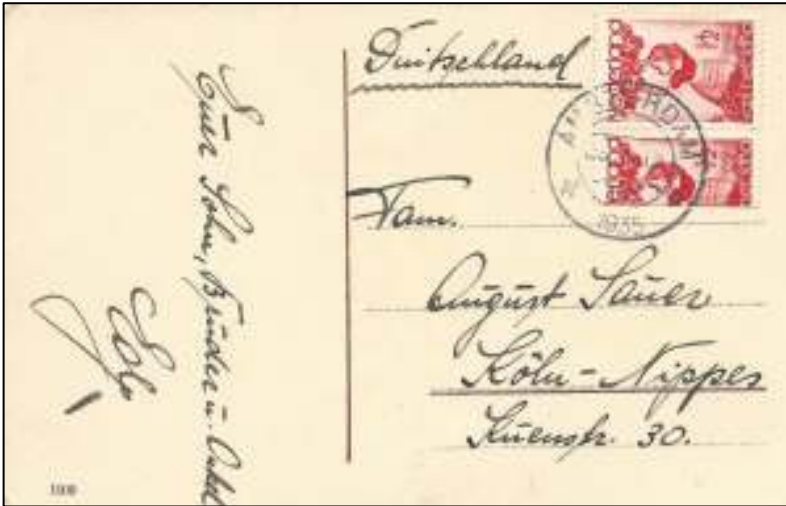 Duitschland
AMSTERDAM
1935
Fam.
August Sauer
Köln-Nippes
Kuenstr. 30.
Euer Sohn, Bruder u. Onkel